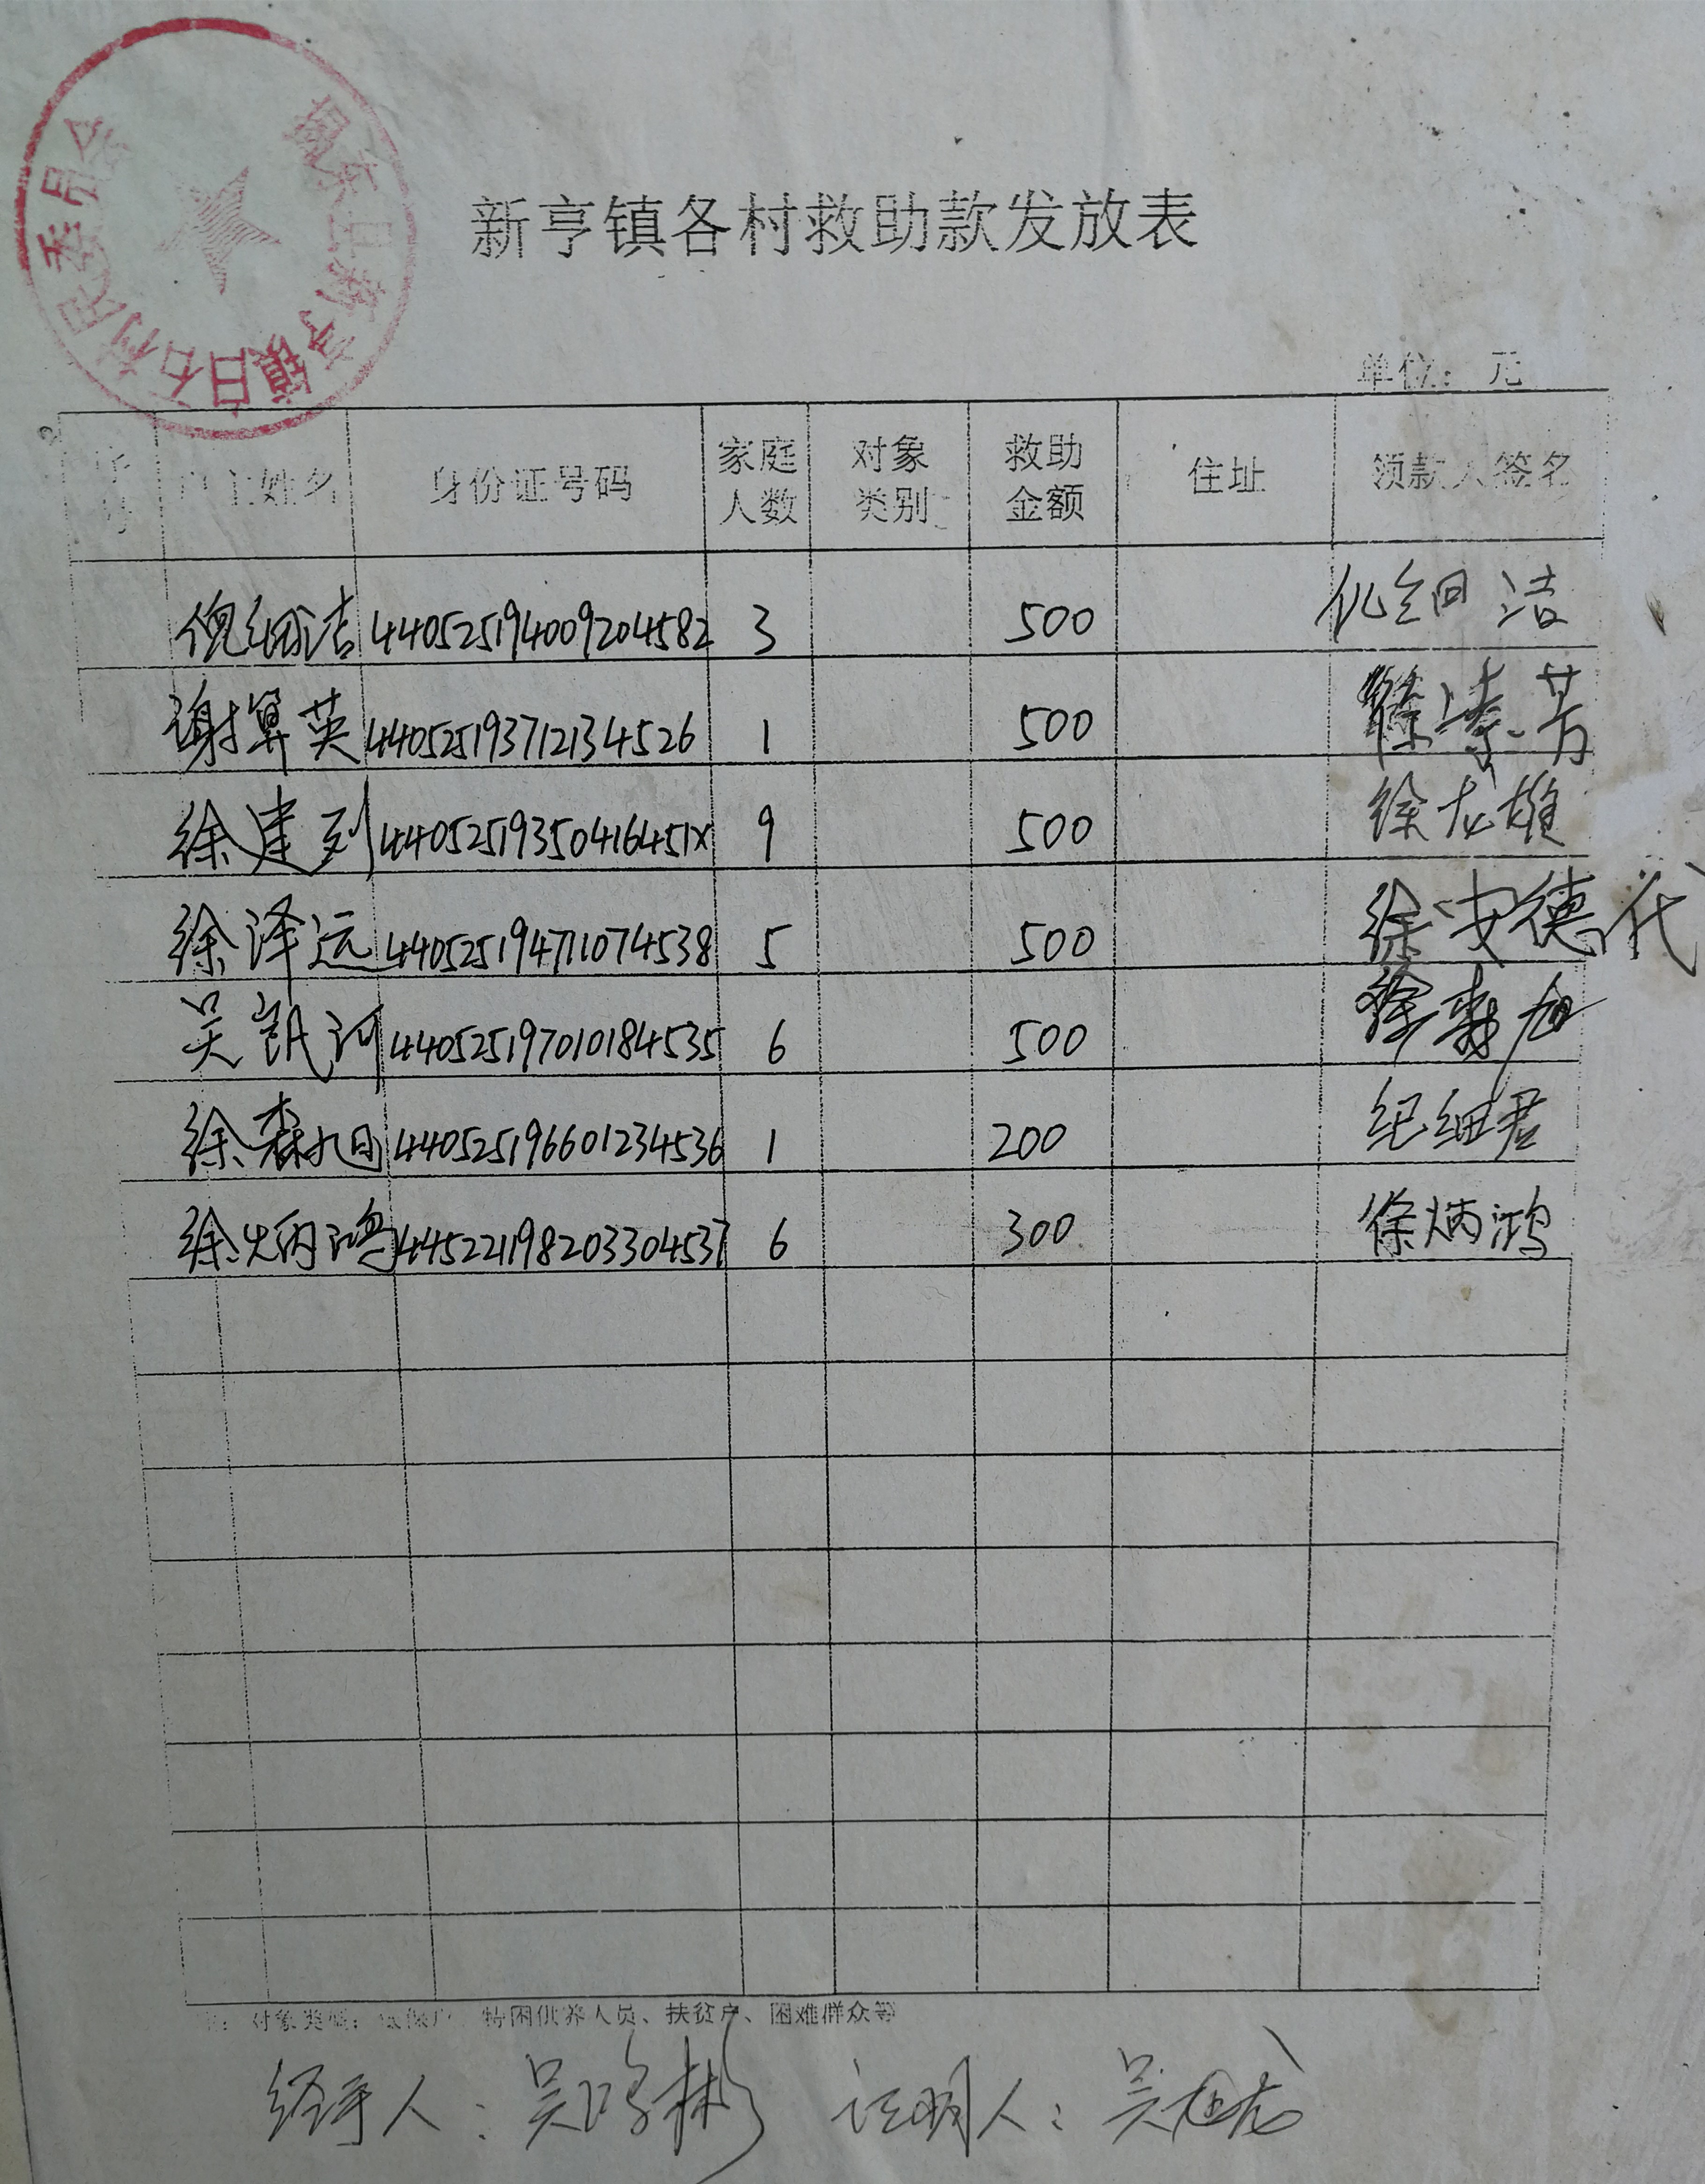 揭东县新亨镇白石村村民委员会
新亨镇各村救助款发放表
单位：元
序号 户主姓名 身份证号码 家庭人数 对象类别 救助金额 住址 领款人签名
倪细洁 440525194009204582 3 500 仉细洁
谢算英 440525193712134526 1 500
徐建列 44052519350416451X 9 500 徐龙雄
徐泽远 440525194711074538 5 500 徐安德代
吴凯河 440525197010184535 6 500
徐森旭 440525196601234536 1 200 纪细君
徐炳鸿 445221198203304537 6 300 徐炳鸿
注：对象类别：低保户、特困供养人员、扶贫户、困难群众等
经手人：吴鸿彬 证明人：吴旭龙